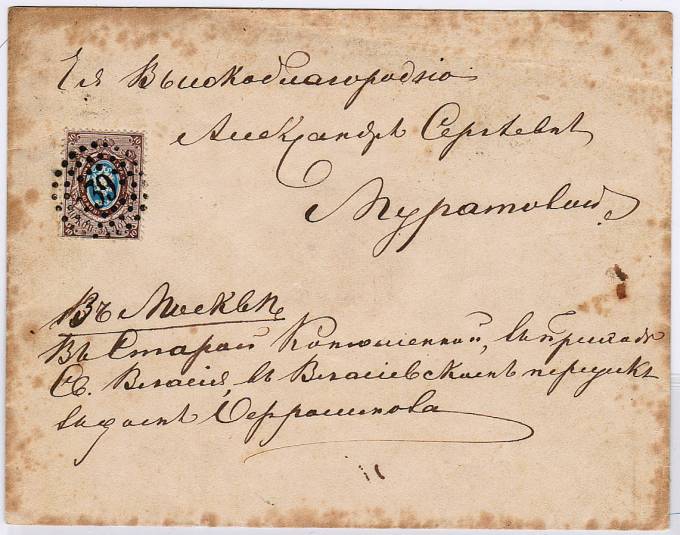 Ея Высокоблагородію
Александрѣ Сергѣевнѣ
Муратовой
39
Въ Москвѣ
Въ Старой Конюшенной, въ приходѣ
Св. Власія, въ Власіевскомъ переулкѣ
въ домѣ